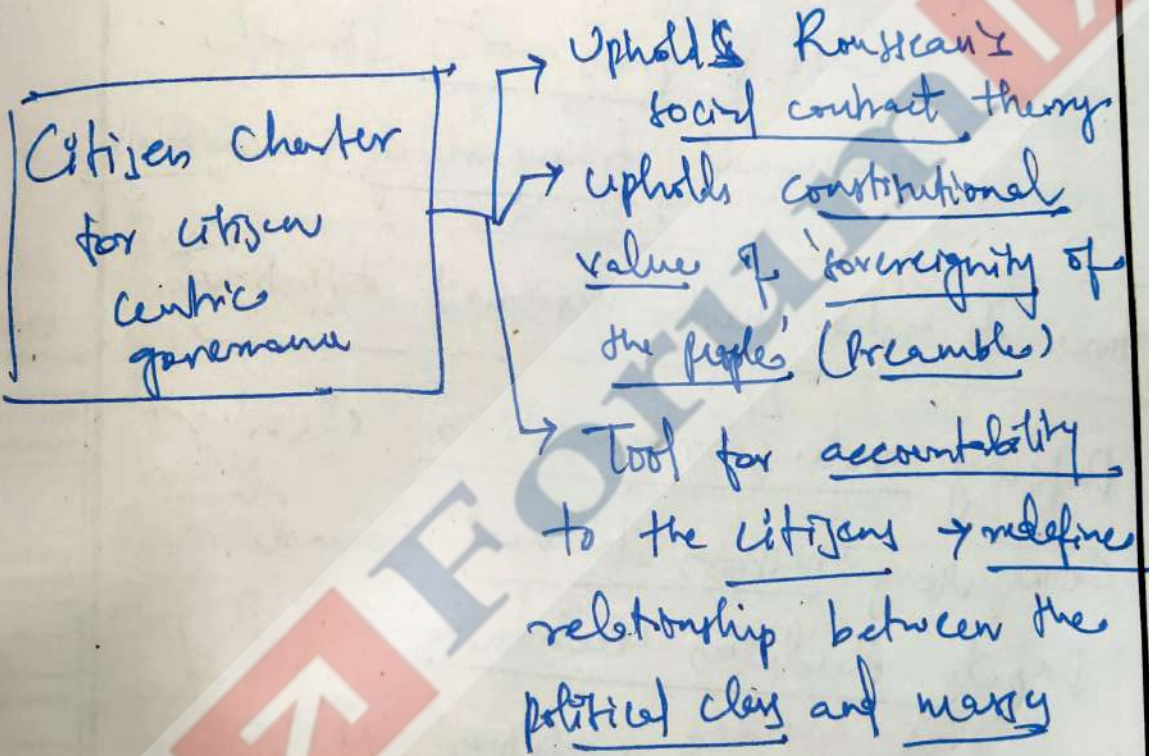 Citizen Charter
for citizen
centric
governance
→ Upholds Rousseau's
social contract theory.
→ upholds constitutional
value of 'sovereignity of
the people' (Preamble)
→ Tool for accountability
to the citizens → redefines
relationship between the
political class and
Forum